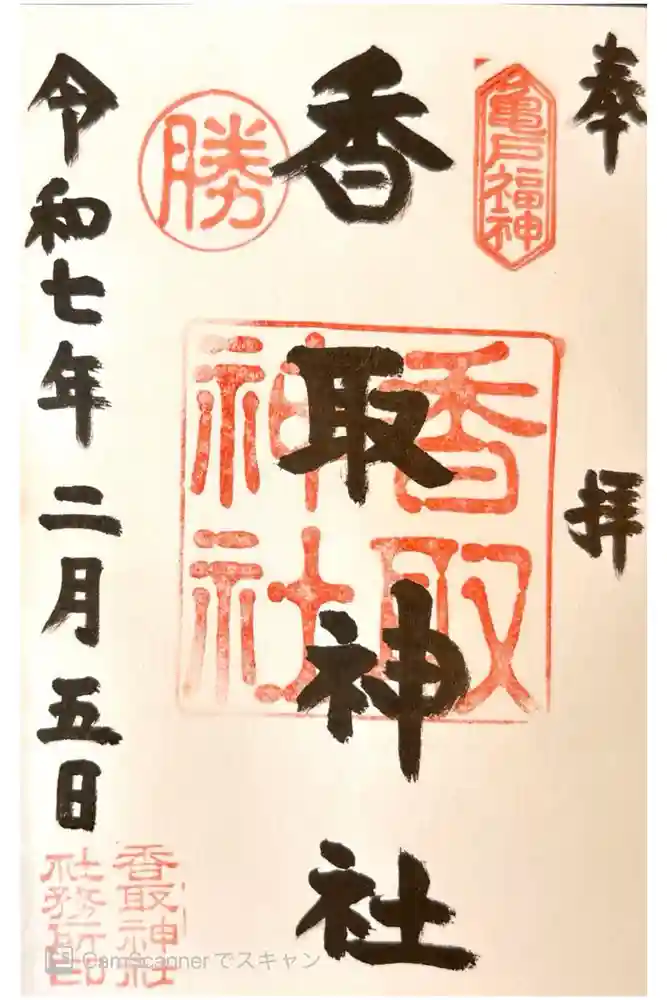 奉拝
亀戸福神
香取神社
香取
神社
勝
令和七年二月五日
香取神社
社務所印
CamScannerでスキャン